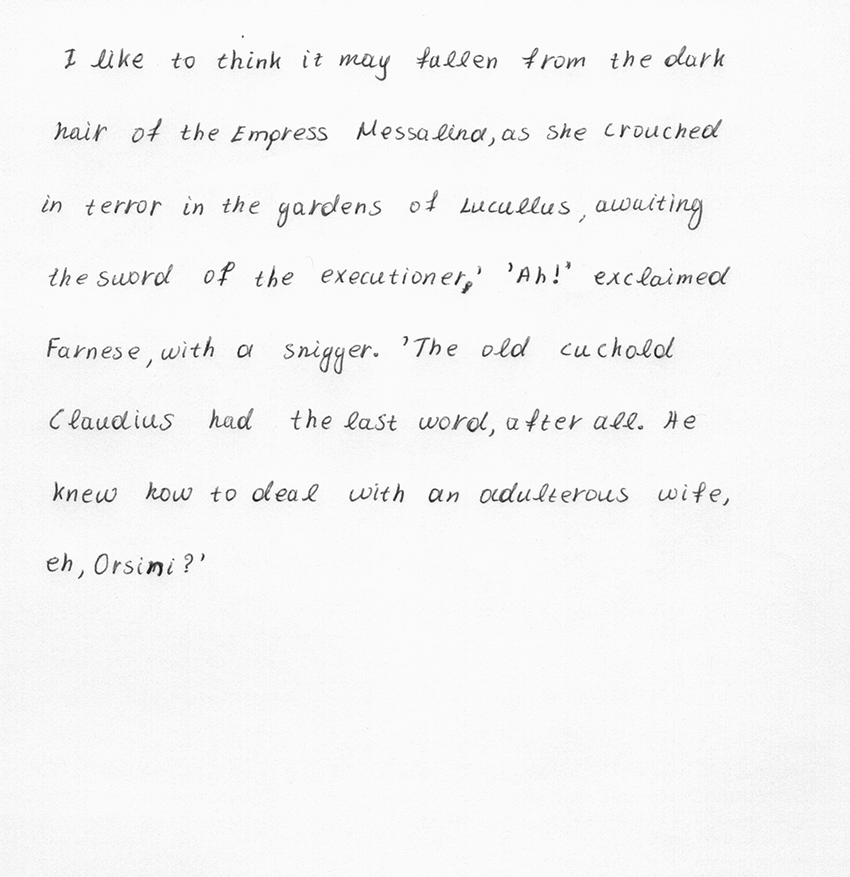 I like to think it may fallen from the dark
hair of the Empress Messalina, as she crouched
in terror in the gardens of Lucullus, awaiting
the sword of the executioner,' 'Ah!' exclaimed
Farnese, with a snigger. 'The old cuchold
Claudius had the last word, after all. He
knew how to deal with an adulterous wife,
eh, Orsini?'